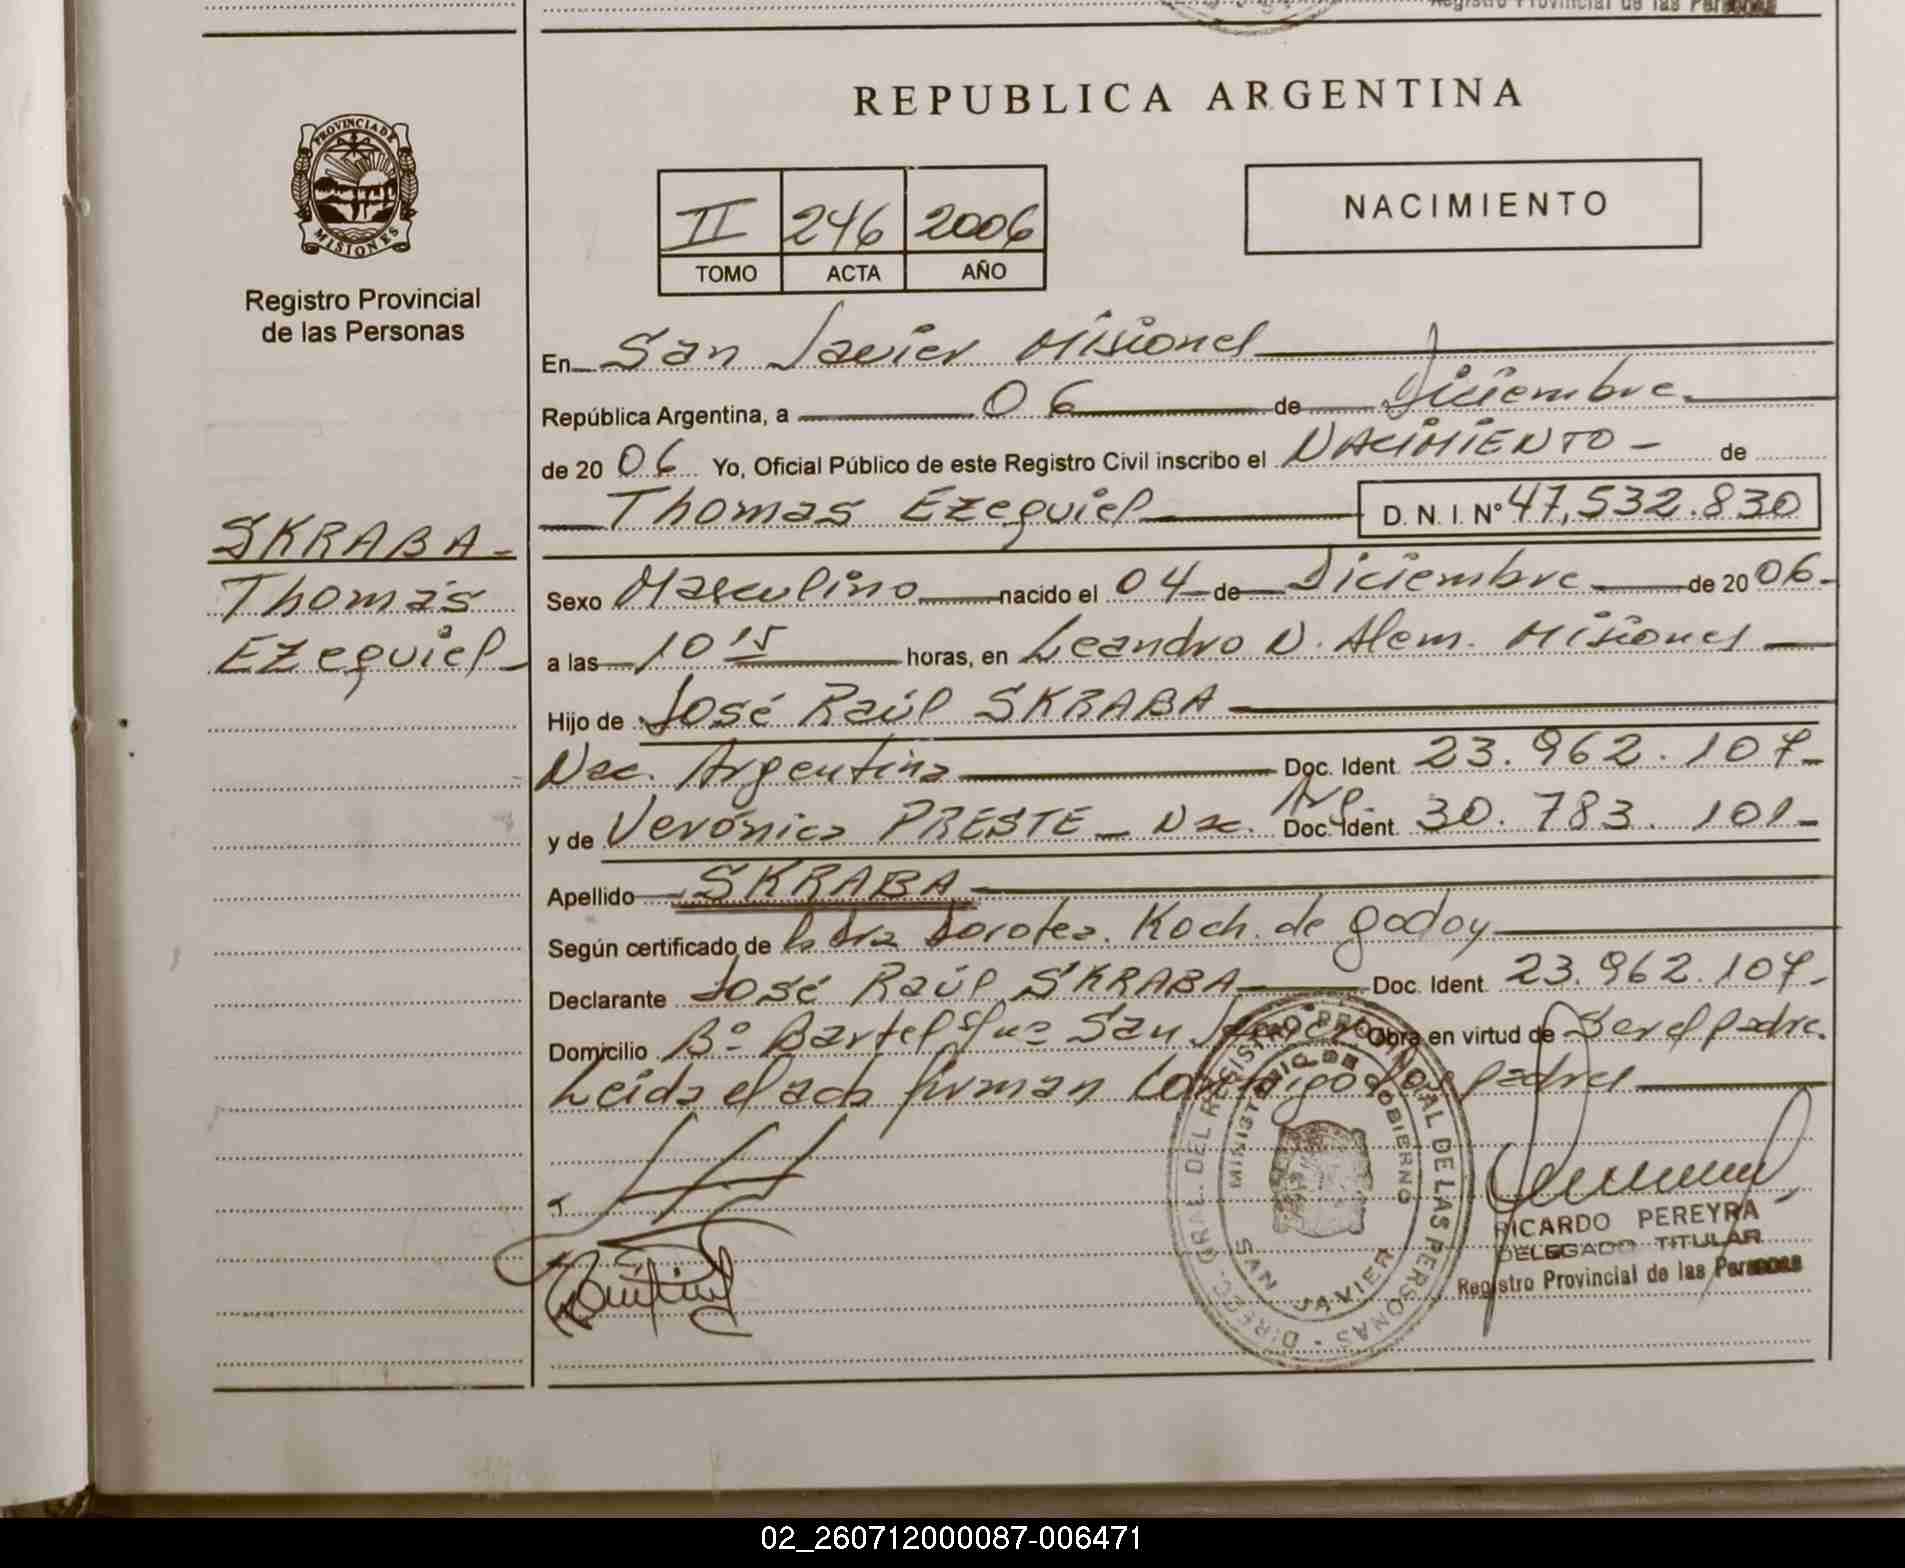 Registro Provincial de las Personas
REPUBLICA ARGENTINA
PROVINCIA DE
MISIONES
Registro Provincial
de las Personas
II 246 2006
TOMO ACTA AÑO
NACIMIENTO
SKRABA-
Thomás
Ezequiel-
En San Javier Misiones
República Argentina, a 06 de Diciembre
de 20 06 Yo, Oficial Público de este Registro Civil inscribo el NACIMIENTO - de
Thomas Ezequiel D. N. I. Nº 47.532.830
Sexo Masculino nacido el 04 de Diciembre de 20 06-
a las 10 15 horas, en Leandro N. Alem. Misiones
Hijo de José Raúl SKRABA
Nac. Argentina Doc. Ident. 23.962.107-
y de Verónica PRESTE - Nac. Arg. Doc. Ident. 30.783.101-
Apellido SKRABA
Según certificado de la Dra Dorotea. Koch. de Godoy
Declarante José Raúl SKRABA Doc. Ident. 23.962.107-
Domicilio Bº Bartel San Javier Obra en virtud de Ser el padre.
Leida el acta firman conmigo los padres
DIREC. GRAL. DEL REGISTRO PROVINCIAL DE LAS PERSONAS
MINISTERIO DE GOBIERNO
SAN JAVIER
RICARDO PEREYRA
DELEGADO TITULAR
Registro Provincial de las Personas
02_260712000087-006471